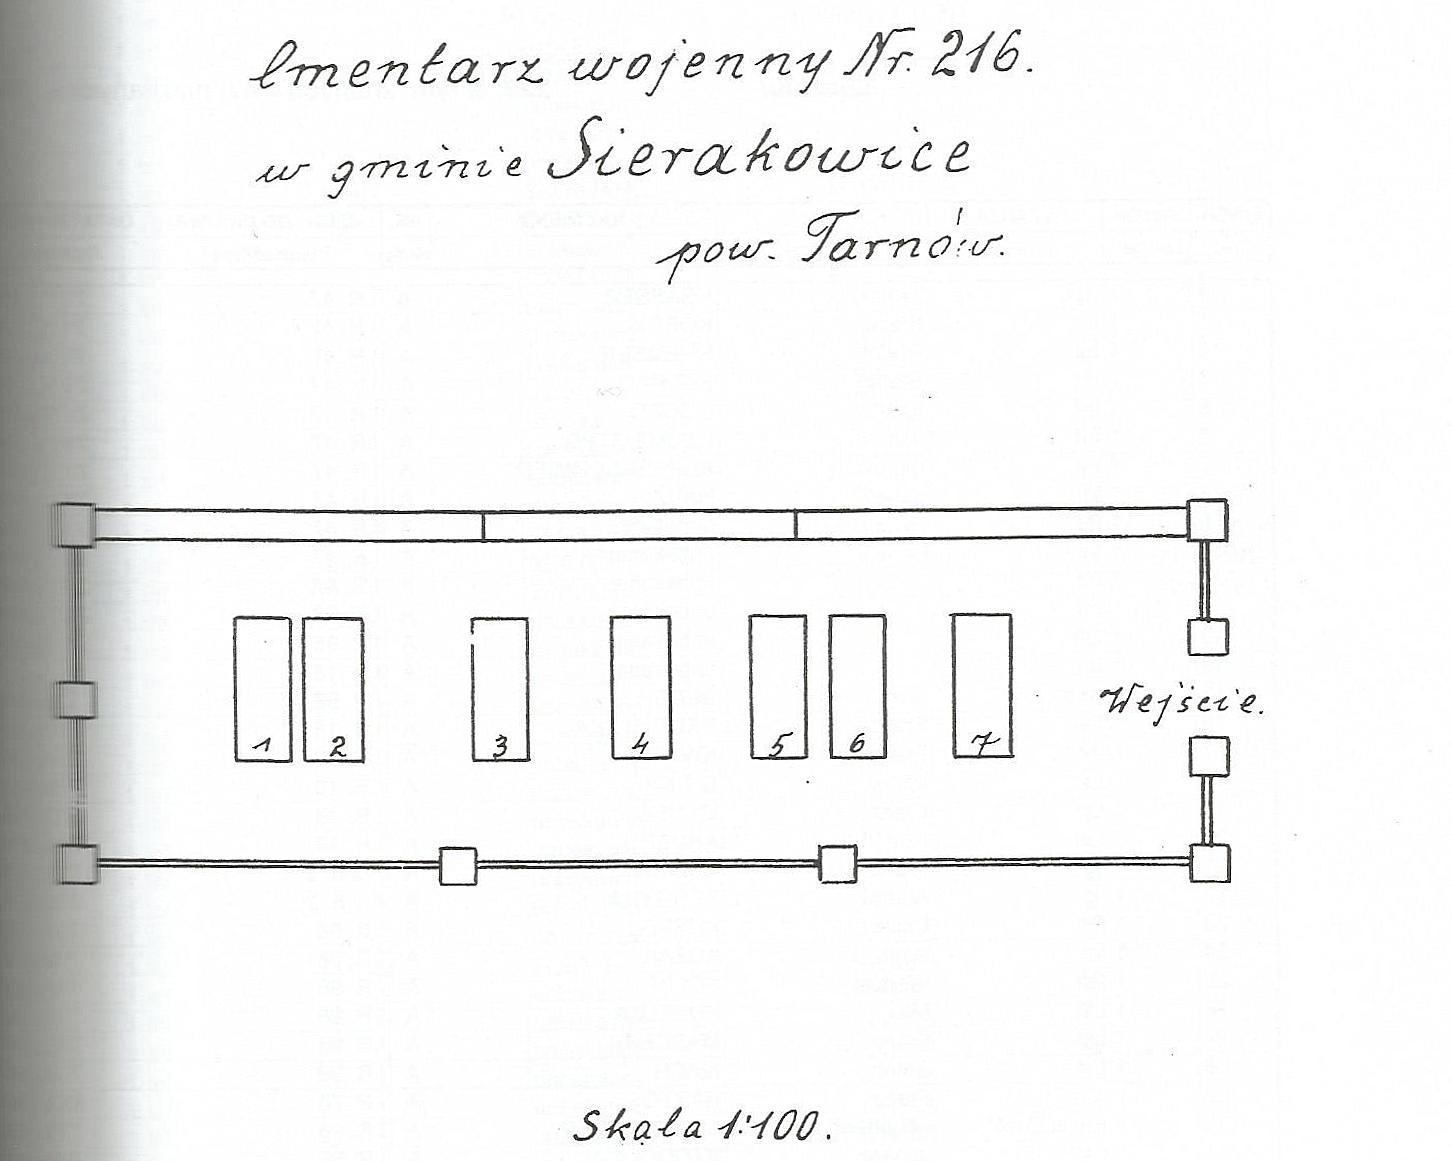 Cmentarz wojenny Nr. 216.
w gminie Sierakowice
pow. Tarnów.
1 2 3 4 5 6 7
Wejście.
Skala 1:100.